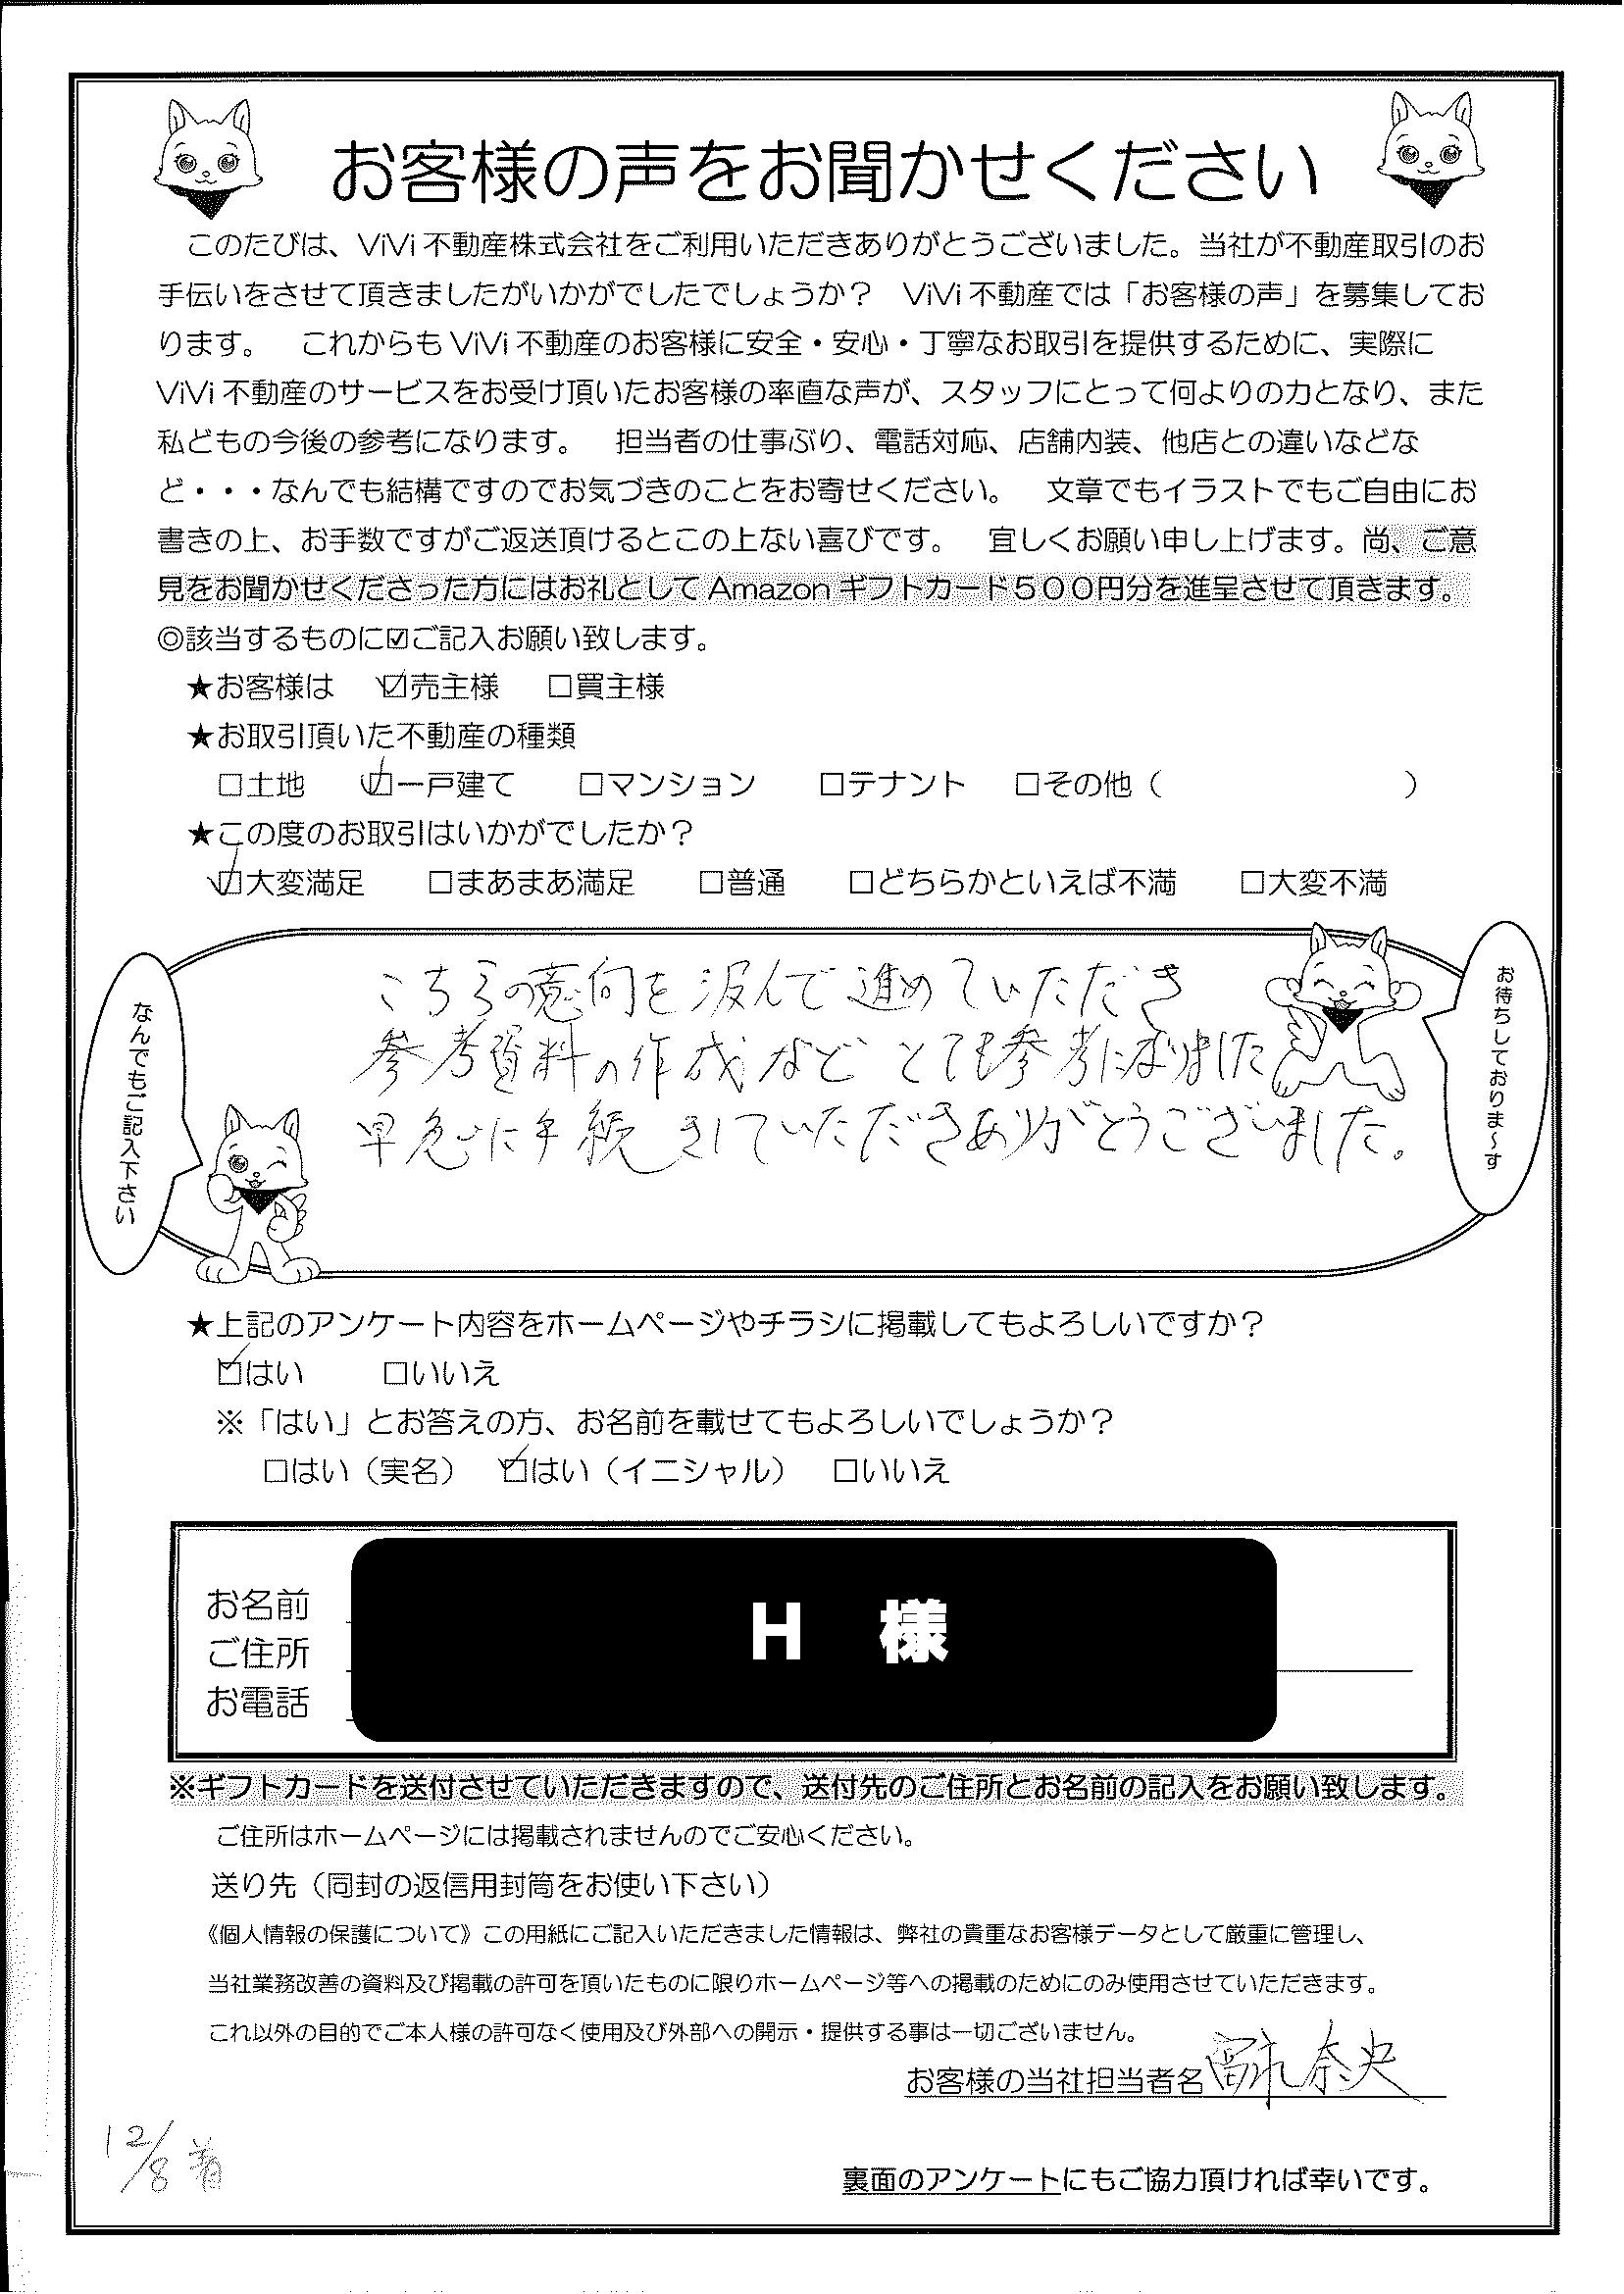 お客様の声をお聞かせください
このたびは、ViVi不動産株式会社をご利用いただきありがとうございました。当社が不動産取引のお
手伝いをさせて頂きましたがいかがでしたでしょうか？　ViVi不動産では「お客様の声」を募集してお
ります。　これからもViVi不動産のお客様に安全・安心・丁寧なお取引を提供するために、実際に
ViVi不動産のサービスをお受け頂いたお客様の率直な声が、スタッフにとって何よりの力となり、また
私どもの今後の参考になります。　担当者の仕事ぶり、電話対応、店舗内装、他店との違いなどな
ど・・・なんでも結構ですのでお気づきのことをお寄せください。　文章でもイラストでもご自由にお
書きの上、お手数ですがご返送頂けるとこの上ない喜びです。　宜しくお願い申し上げます。尚、ご意
見をお聞かせくださった方にはお礼としてAmazonギフトカード５００円分を進呈させて頂きます。
◎該当するものに☑ご記入お願い致します。
★お客様は　☑売主様　□買主様
★お取引頂いた不動産の種類
□土地　☑一戸建て　□マンション　□テナント　□その他（　　　　　　　　）
★この度のお取引はいかがでしたか？
☑大変満足　□まあまあ満足　□普通　□どちらかといえば不満　□大変不満
なんでもご記入下さい
お待ちしておりま～す
こちらの意向を汲んで進めていただき
参考資料の作成など とても参考になりました
早急に手続きしていただきありがとうございました。
★上記のアンケート内容をホームページやチラシに掲載してもよろしいですか？
☑はい　□いいえ
※「はい」とお答えの方、お名前を載せてもよろしいでしょうか？
□はい（実名）　☑はい（イニシャル）　□いいえ
お名前
ご住所
お電話
H 様
※ギフトカードを送付させていただきますので、送付先のご住所とお名前の記入をお願い致します。
ご住所はホームページには掲載されませんのでご安心ください。
送り先（同封の返信用封筒をお使い下さい）
《個人情報の保護について》この用紙にご記入いただきました情報は、弊社の貴重なお客様データとして厳重に管理し、
当社業務改善の資料及び掲載の許可を頂いたものに限りホームページ等への掲載のためにのみ使用させていただきます。
これ以外の目的でご本人様の許可なく使用及び外部への開示・提供する事は一切ございません。
お客様の当社担当者名 富永奈央
12/8着
裏面のアンケートにもご協力頂ければ幸いです。